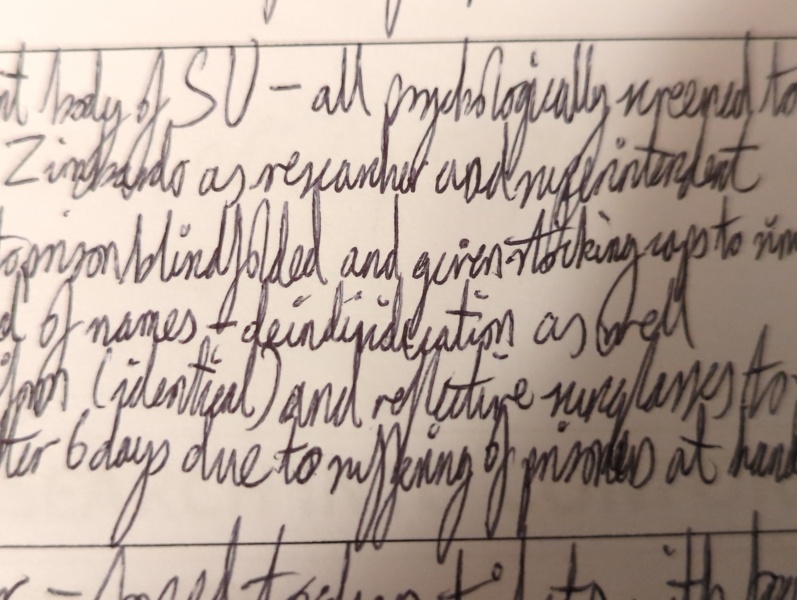 nt body of SU – all psychologically screened to
Zimbardo as researcher and superintendent
to prison blindfolded and given stocking caps to sim
d of names + deindividuation as well
ifrom (identical) and reflective sunglasses to
ter 6 days due to suffering of prisoners at hand